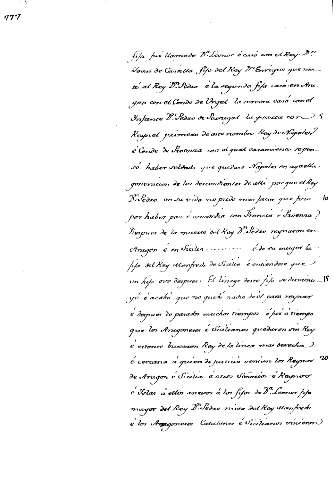 777
fija fue llamada Dª Leonor é casó con el Rey Dn
Juan de Castilla, fijo del Rey Dn Enrique que ma-
tó al Rey Dn Pedro é la segunda fija casó en Ara-
gon con el Conde de Urgel la tercera casó con el
Infante Dn Pedro de Portugal la quarta con 5
Raynel primero de este nombre Rey de Napoles
é Conde de Proenza con el qual casamiento
haber que quedara Napoles en aquella
generacion de los descendientes de allí porque el Rey
Dn Pedro en su vida no pudo mas facer que fue 10
por haber paz é concordia con Francia é Proenza
Despues de la muerte del Rey Dn Pedro regnaron en
Aragon é en Sicilia .......... é de su muger la
fija del Rey Manfredo de Sicilia é entiendese que
un fijo ovo despues. El linage deste fijo 15
ya é acabó que no quedó nadie de él para reynar
é despues de pasados muchos tiempos é fué á tiempo
que los Aragoneses é Sicilianos quedaron sin Rey
é ovieron Rey de la linea mas derecha
é cercana á quien de justicia venian los Reynos 20
de Aragon é Sicilia é otros Señorios é Reynos
é Islas á ellos anexos á los fijos de Dª Leonor fija
mayor del Rey Dn Pedro nieta del Rey Manfredo
é los Aragoneses Catalanes é Sicilianos vinieron